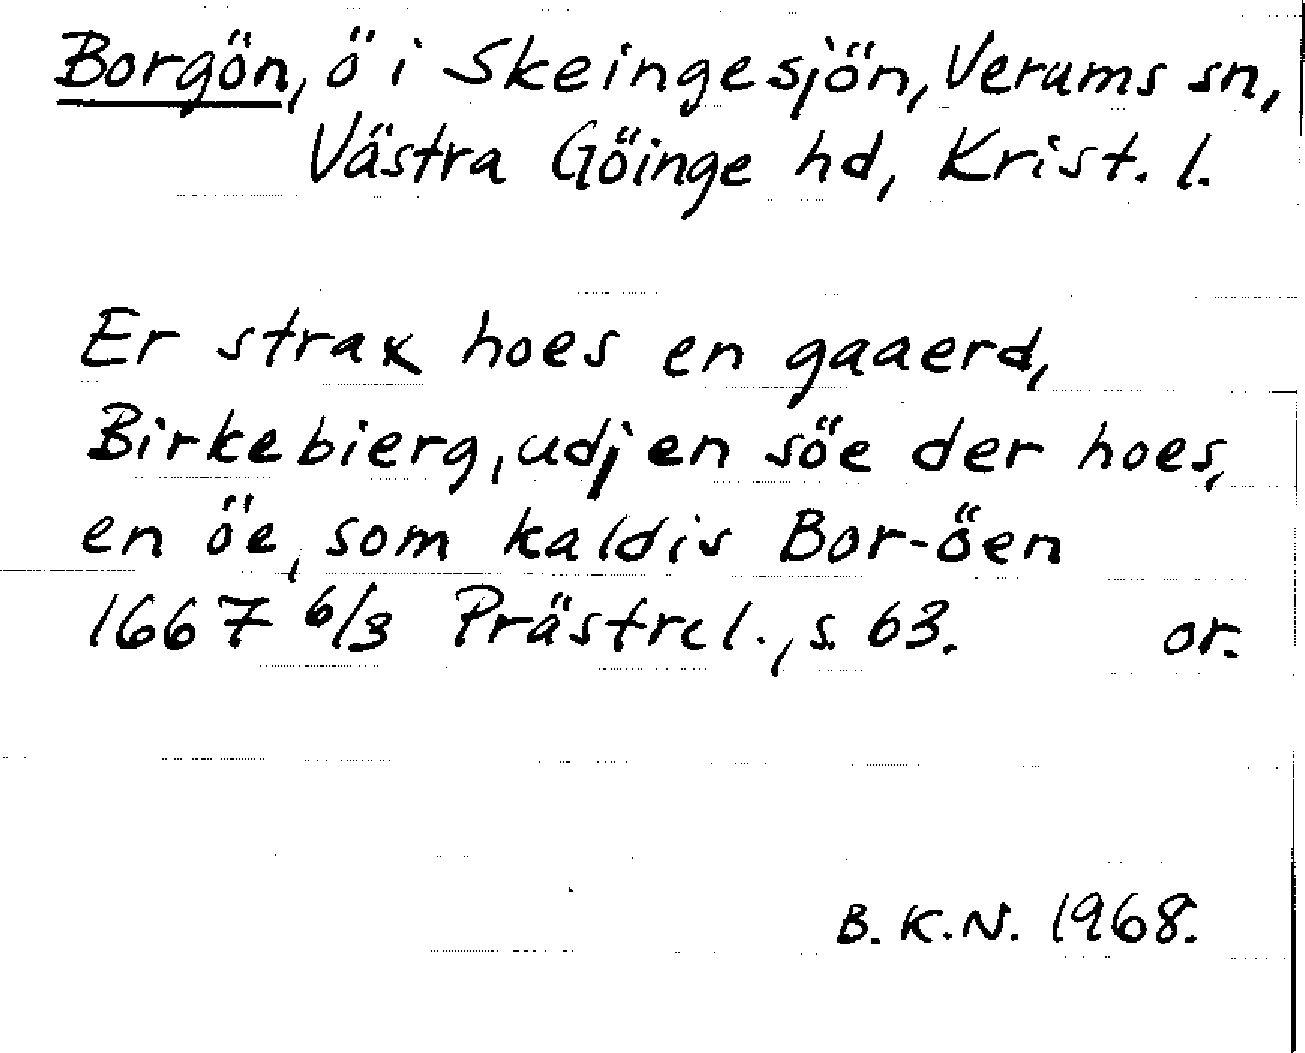 Borgön, ö i Skeingesjön, Verums sn,
Västra Göinge hd, Krist. l.
Er strax hoes en gaaerd,
Birkebierg, udj en söe der hoes,
en öe, som kaldis Bor-öen
1667 6/3 Prästrel., s. 63. or.
B. K. N. 1968.